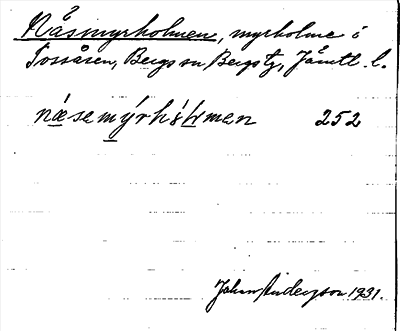 Nåsmyrholmen, myrholme i
Tossåsen, Bergs sn Bergs tg, Jämtl. l.
næsemýrhólmen 252
Johan Anderzson 1931.